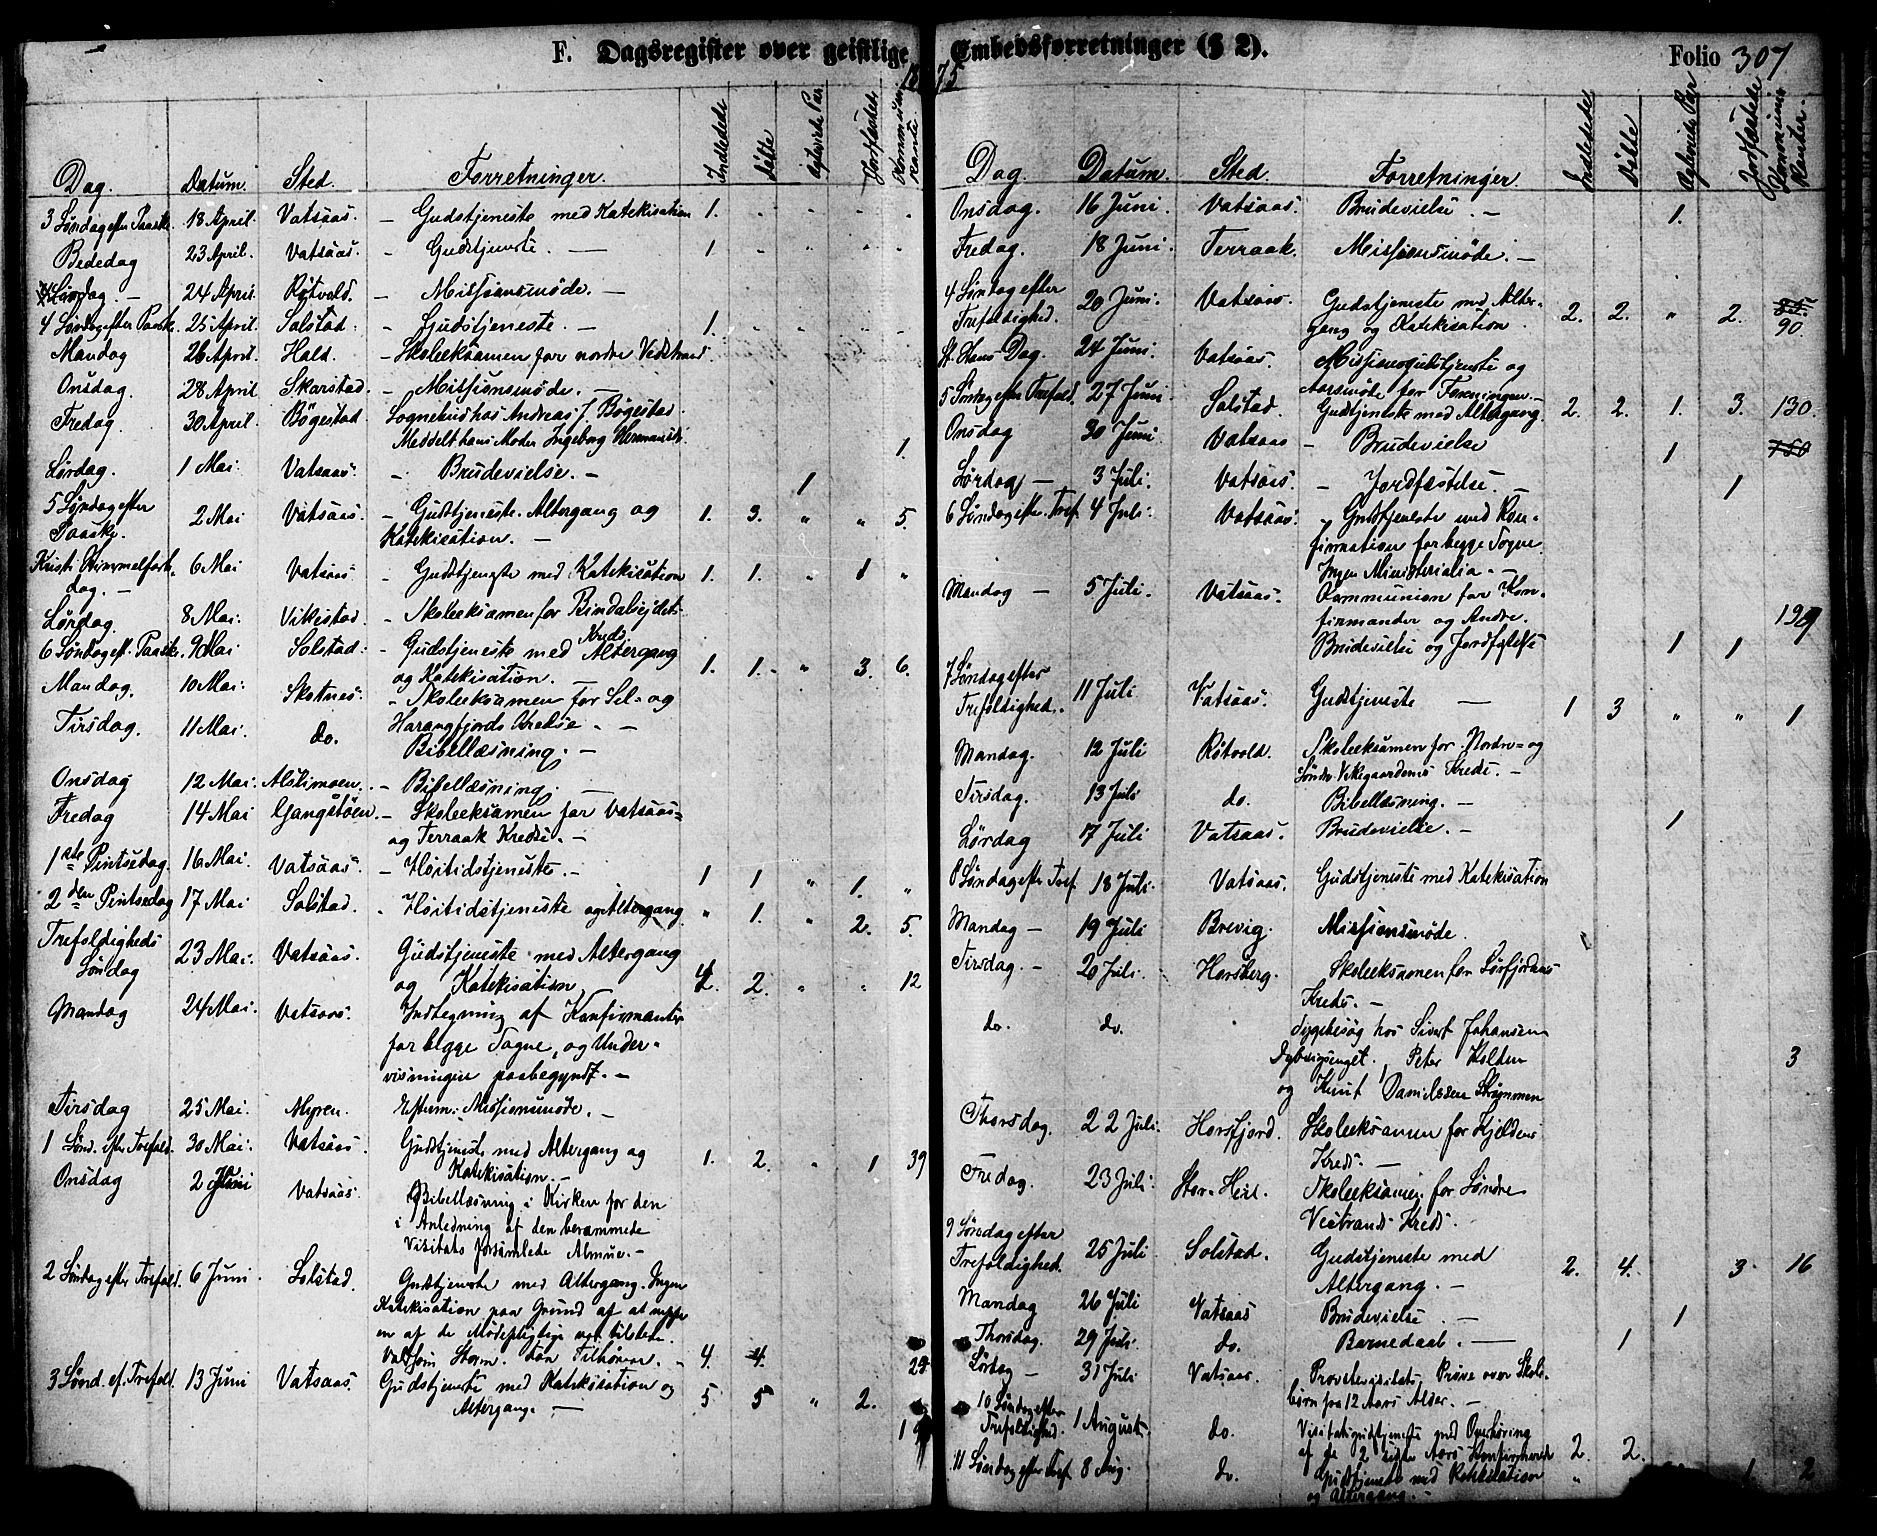 F. Dagsregister over geistlige Embedsforretninger (§ 2).
Folio 307
1875
Dag. Datum. Sted. Forretninger. Indledede Døbte Egteviede Par Jordfæstede Kommunikanter
3 Søndag efter Paaske. 18 April. Vatsaas. - Gudstjeneste med Katekisation 1.
Bededag 23 April. Vatsaas. - Gudstjeneste. - 1
24 April. Røtvold. - Missionsmøde. -
4 Søndag efter Paaske 25 April. Solstad. - Gudstjeneste. - 1.
Mandag 26 April. Hald. - Skoleeksamen for nordre Vestrand
Onsdag. 28 April Skarstad. - Missionsmøde. -
Fredag. 30 April. Bøgestad Sognebud hos Andreas J. Bøgestad.
Meddelt hans Moder Ingeborg 1.
Lørdag. 1 Mai. Vatsaas. - Brudevielse. - 1
5 Søndag efter
Paaske. 2 Mai Vatsaas. - Gudstjeneste. Altergang og 1. 3. " " 5.
Katekisation. -
Kristi Himmelfarts
dag. - 6 Mai Vatsaas. - Gudstjeneste med Katekisation 1. 1. " 1 "
Lørdag. 8 Mai. Vikestad. - Skoleeksamen for Bindalsejdets
Kreds
6 Søndag eft. Paaske. 9 Mai Solstad. - Gudstjeneste med Altergang
og Katekisation. 1. 1. " 3. 6.
Mandag. 10 Mai. Skotnes. - Skoleeksamen for Sel- og
Harangfjords Kredse. -
Tirsdag. 11 Mai. do. Bibellæsning. -
Onsdag 12 Mai. Alslimoen. - Bibellæsning. -
Fredag 14 Mai Gangstøen. - Skoleeksamen for Vatsaas-
og Terraak Kredse. -
1ste Pintsedag. 16 Mai. Vatsaas. - Høitidstjeneste. - 1 1 " 1. "
2den Pintsedag 17 Mai Solstad. - Høitidstjeneste og Altergang " 1. " 2. 5.
Trefoldigheds
Søndag 23 Mai. Vatsaas. Gudstjeneste med Altergang
og Katekisation 2. 2. " " 12
Mandag 24 Mai. Vatsaas. Indtegning af Konfirmanter
for begge Sogne, og Under-
visningen paabegyndt. -
Tirsdag 25 Mai. Myren. Efterm: Missionsmøde. -
1 Sønd. efter Trefold. 30 Mai. Vatsaas. Gudstjeneste med Altergang og
Katekisation. - 1. 2. " 1 39
Onsdag 2 Juni Vatsaas. Bibellæsning i Kirken for den
i Anledning af den berammede
Visitats forsamlede Almue. -
2 Søndag efter Trefold. 6 Juni. Solstad. Gudstjeneste med Altergang. Ingen
Katekisation paa Grund af at neppe
en af de Mødepligtige var tilstede.
Voldsom Storm. Faa Tilhørere. - 4. 4.
3 Sønd. ef. Trefold. 13 Juni Vatsaas. Gudstjeneste med Katekisation og
Altergang. - 5 5 " 2.
Dag. Datum. Sted. Forretninger. Indledede Døbte Egteviede Par Jordfæstede Kommunikanter.
Onsdag. 16 Juni. Vatsaas. Brudevielse. - 1.
Fredag. 18 Juni. Terraak. Missionsmøde. -
4 Søndag efter
Trefoldighed. 20 Juni. Vatsaas. Gudstjeneste med Alter-
gang og Katekisation. 2. 2. " 2. 90.
St. Hans Dag. 24 Juni. Vatsaas. Missionsgudstjeneste og
Aarsmøde for Foreningen. -
5 Søndag efter Trefold. 27 Juni Solstad. Gudstjeneste med Altergang. 2. 2. 1. 3. 130.
Onsdag 30 Juni Vatsaas - Brudevielse 1 150
Lørdag - 3 Juli. Vatsaas. - Jordfæstelse. - 1
6 Søndag efter Tref. 4 Juli. Vatsaas. - Gudstjeneste med Kon-
firmation for begge Sogne.
Ingen Ministerialia. -
Mandag - 5 Juli. Vatsaas. Kommunion for Kon-
firmander og Andre. 129
Brudevielse og Jordfæstelse 1 1
7 Søndag efter
Trefoldighed. 11 Juli Vatsaas. Gudstjeneste - 1 3 " " 1
Mandag. 12 Juli Røtvold. Skoleeksamen for Nordre- og
Søndre Vikegaardenes Kreds. -
Tirsdag. 13 Juli do. Bibellæsning. -
Lørdag 17 Juli Vatsaas. Brudevielse. - 1
8 Søndag efter Tref. 18 Juli. Vatsaas. Gudstjeneste med Katekisation
Mandag - 19 Juli Brevig. Missionsmøde.
Tirsdag. - 20 Juli. Horsberg. Skoleeksamen for Sørfjordens
Kreds. -
do. do. Sygebesøg hos Sivert Johansen
Dybvigsenget. Peter Holten
og Knut Danielssen Strømmen 3
Thorsdag. 22 Juli. Horsfjord. Skoleeksamen for Kjeldens
Kreds. -
Fredag. 23 Juli. Stor-Heil. Skoleeksamen for Søndre
Vestrands Kreds.
9 Søndag efter
Trefoldighed. 25 Juli Solstad. Gudstjeneste med
Altergang. - 2. 4. 3. 16
Mandag 26 Juli Vatsaas Brudevielse. - 1
Thorsdag. 29 Juli. do. Barnedaab. - 1
Lørdag - 31 Juli Vatsaas. Provstevisitats. Prøve over Skole-
børn fra 12 Aars Alder. -
10 Søndag efter
Trefoldighed. 1 August. do. Visitatsgudstjeneste med Overhøring
af de 2 sidste Aars Konfirmerede 2. 2.
11 Søndag efter Tref. 8 Aug. do. Gudstjeneste med Katekisation
og Altergang. - " 1 2